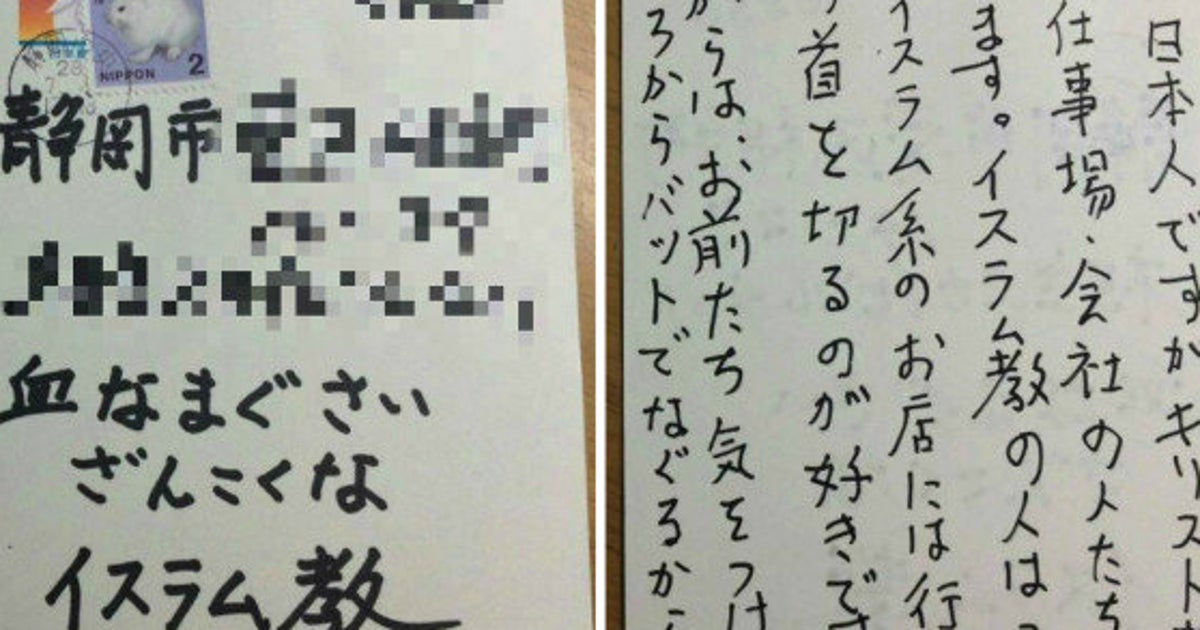 NIPPON 2
静岡市
血なまぐさい
ざんこくな
イスラム教
日本人ですがキリスト
仕事場・会社の人たち
ます。イスラム教の人は
イスラム系のお店には行
首を切るのが好きで
からは、お前たち気をつけ
ろからバットでなぐるか